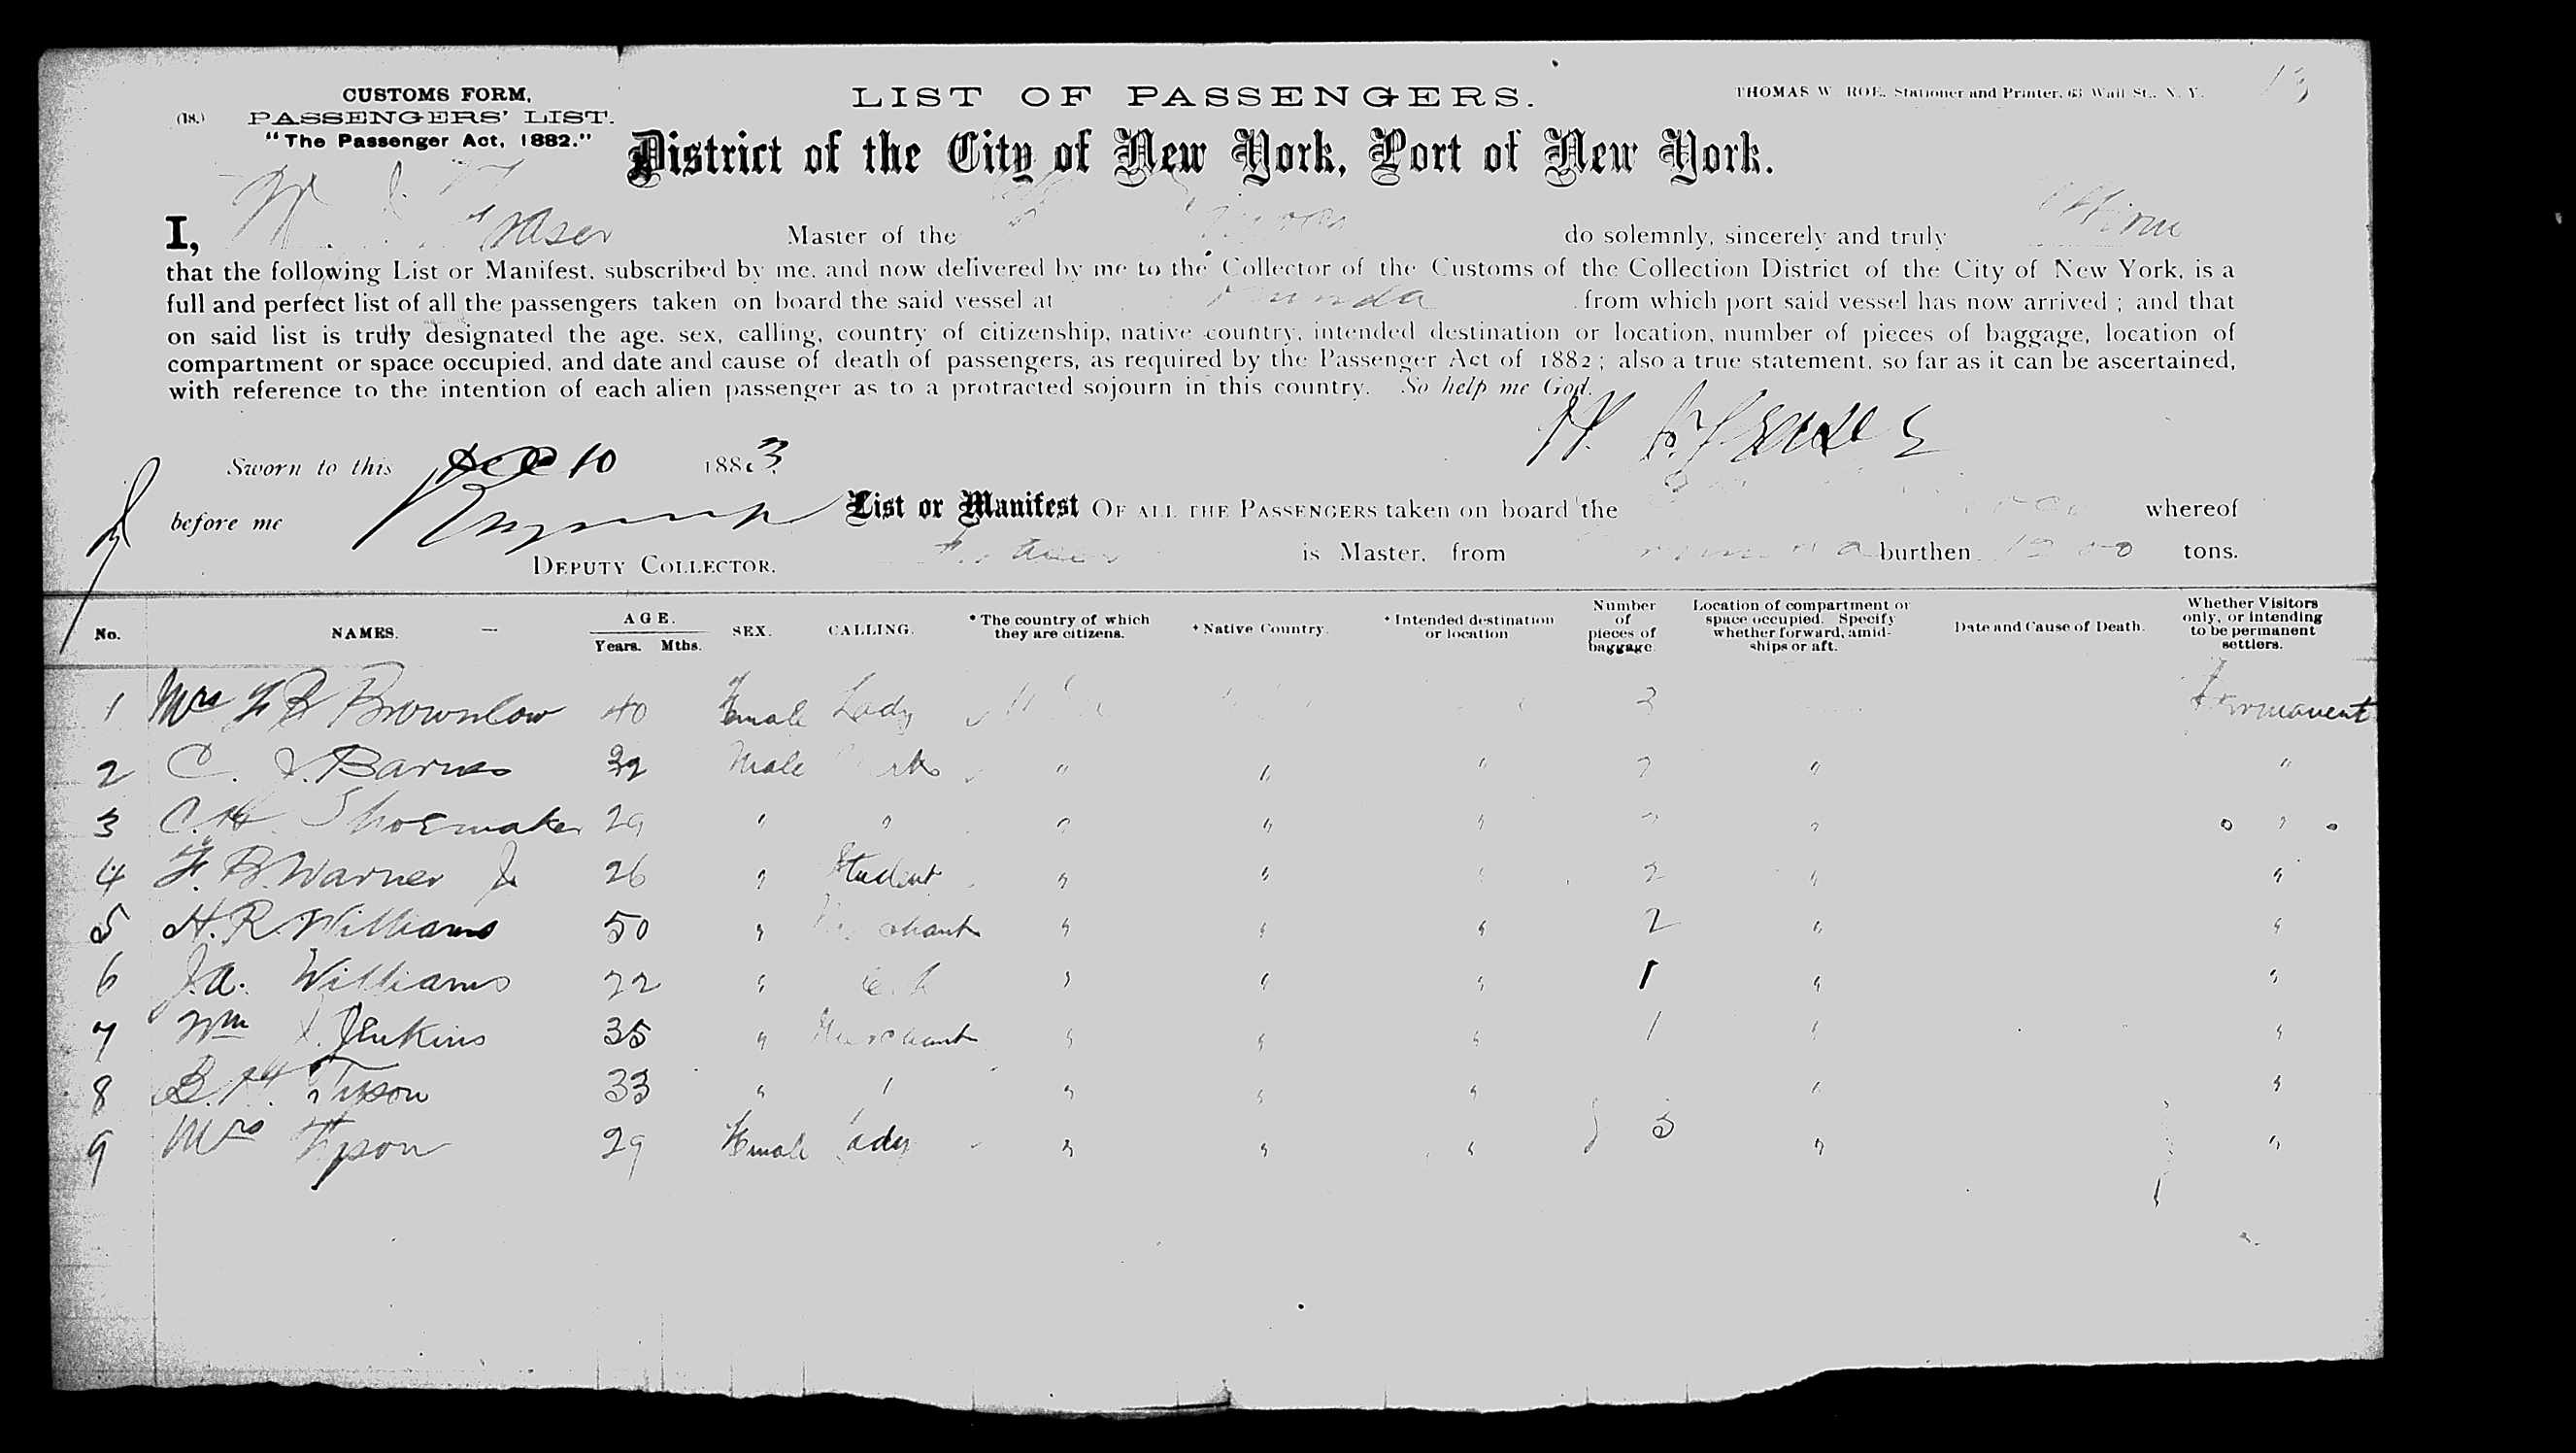 CUSTOMS FORM,
(18.) PASSENGERS' LIST.
"The Passenger Act, 1882."
LIST OF PASSENGERS.
THOMAS W. ROE, Stationer and Printer, 63 Wall St., N. Y.
13
District of the City of New York, Port of New York.
I, Fraser Master of the do solemnly, sincerely and truly
that the following List or Manifest, subscribed by me, and now delivered by me to the Collector of the Customs of the Collection District of the City of New York, is a
full and perfect list of all the passengers taken on board the said vessel at from which port said vessel has now arrived; and that
on said list is truly designated the age, sex, calling, country of citizenship, native country, intended destination or location, number of pieces of baggage, location of
compartment or space occupied, and date and cause of death of passengers, as required by the Passenger Act of 1882; also a true statement, so far as it can be ascertained,
with reference to the intention of each alien passenger as to a protracted sojourn in this country. So help me God.
Sworn to this Dec 10 1883
before me
DEPUTY COLLECTOR.
List or Manifest OF ALL THE PASSENGERS taken on board the whereof
is Master, from burthen tons.
No. NAMES. AGE. Years. Mths. SEX. CALLING. * The country of which they are citizens. * Native Country. * Intended destination or location Number of pieces of baggage. Location of compartment or space occupied. Specify whether forward, amid-ships or aft. Date and Cause of Death. Whether Visitors only, or intending to be permanent settlers.
1 Mrs F B Brownlow 40 Female Lady 3 Permanent
2 C. J. Barnes 32 Male " " " 2 " "
3 C. H. Shoemaker 29 " " " " " " " "
4 F. B. Warner Jr 26 " Student " " " 2 " "
5 H. R. Williams 50 " Merchant " " " 2 " "
6 J. A. Williams 22 " " " " 1 " "
7 Wm J. Jenkins 35 " Merchant " " " 1 " "
8 B. H. Tyson 33 " " " " " " "
9 Mrs Tyson 29 Female Lady " " " } 3 " "